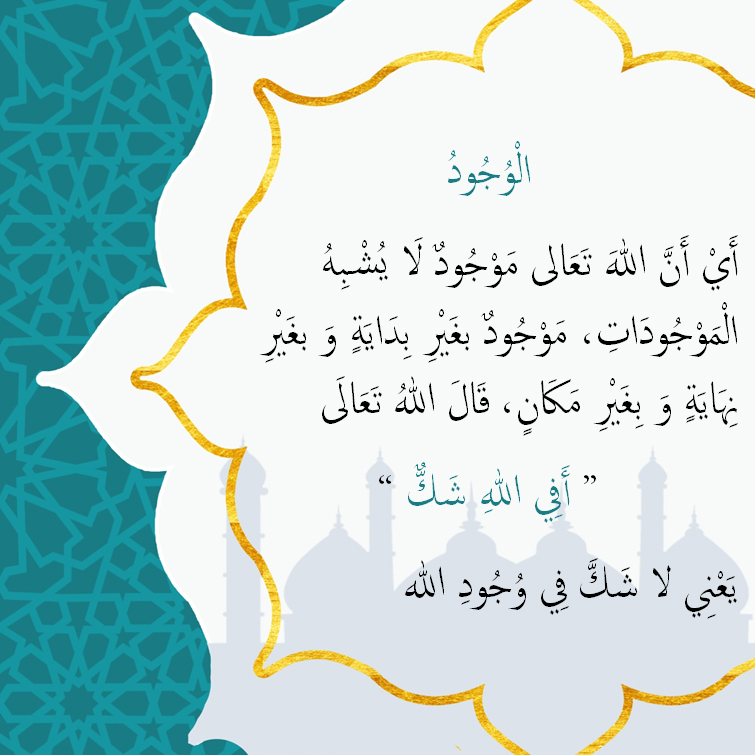 الْوُجُودُ
أَيْ أَنَّ اللهَ تَعَالى مَوْجُودٌ لَا يُشْبِهُ
الْمَوْجُودَاتِ، مَوْجُودٌ بغَيْرِ بِدَايَةٍ وَ بغَيْرِ
نِهَايَةٍ وَ بِغَيْرِ مَكَانٍ، قَالَ اللهُ تَعَالَى
” أَفِي اللهِ شَكٌّ “
يَعْنِي لا شَكَّ فِي وُجُودِ الله